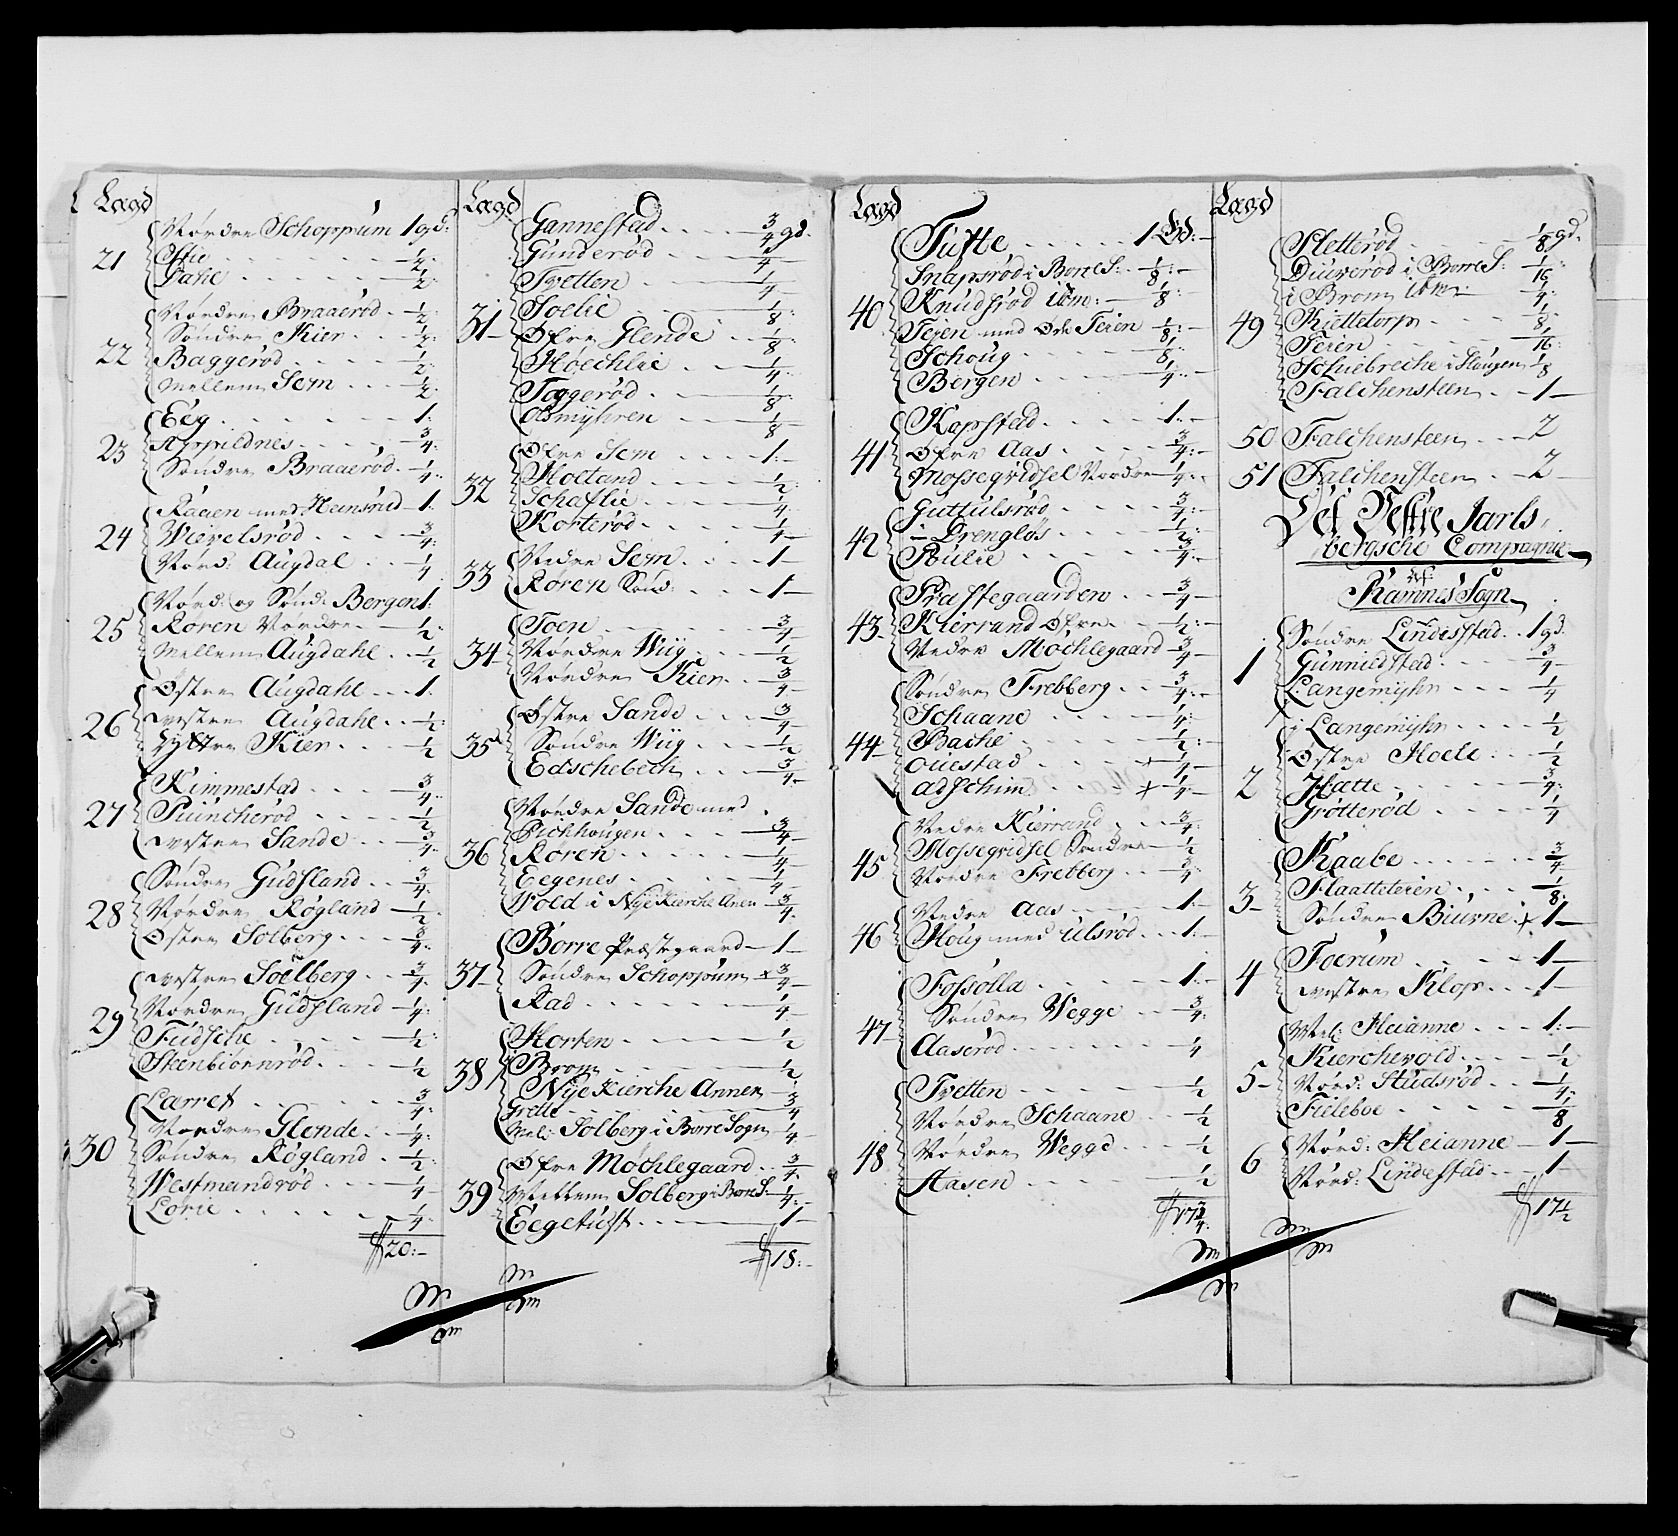 Lægd
Nordre Schoppum 1 gd:
21 Eftie 1/2
Dahl 1/2:
Nordre Braaerød 1/2:
Søndre Kier 1/2:
22 Baggerød 1/2:
Mellem Sem 1/2
Eeg 1:
23 3/4:
Søndre Braaerød 1/4:
Raaen med Heinsrud 1:
24 Wievelsrød 3/4:
Nord: Augdal 1/4
Nord: og Sønd: Bergen 1:
25 Røren Nordre 1/2:
Mellem Augdahl 1/2
Østre Augdahl 1:
26 westre Augdahl 1/2:
Kier 1/2
Kimmestad 3/4:
27 Puncherød 1/2
westre Sande 3/4:
Søndre Gudsland 3/4:
28 Nordre Røgland 1/2
Østre Solberg 3/4:
westre Soelberg 3/4:
29 Nordre Gudsland 1/4:
Fudsche 1/2:
Steenbiørnrød 1/2
Larret 3/4:
Nordre Glende 1/4:
30 Søndre Røgland 1/2:
Westmandrød 1/4
Lorie 1/4:
20:-
Lægd
Gannestad 3/4 gd.
Gunderød 1/4
Tvetten 1/4
Soelie 1/8:
31 Øfre Glende 1/8
Hoechlie 1/4:
Toggerød 1/8
Olsmyhren 1/8
Øfre Sem 1:-
Holtand 1/2:
32 Schaflie 1/4:
Korterød 1/4
Nedre Sem 1-
33 Røren Sønd: 1-
Toen 3/4
34 Nordre Wiig 1/2
Nordre Kier 3/4-
Østre Sande 3/4-
35 Søndre Wiig 1/2
Edschebech 3/4-
Nordre Sande med
Pichhougen 3/4-
36 Røren 1/4
Eegenes 1/4-
Wold i Nye Kirche Anex 3/4
Borre Præstegaard 1-
37 Søndre Schoppum x 3/4-
Rad 1/4-
Horten 1/2
38 Brom 1/2
Nye Kirche Annex 1/2
Grette 3/4
Mel: Solberg i Borre Sogn 1/4-
Øfre Møchlegaard 3/4
39 Mellem Solberg i Borre S: 1/4:-
Eegetuft 1-
18:-
Lægd
Tufte 1 Gd:-
Snapsrød i Borre S: 1/8:-
40 Knudsrød ibm: 1/8:
Teien med Øde Teien 1/8:-
Schoug 1/8:
Bergen 1/4:-
Kapstad 1:-
41 Øfre Aas 3/4:-
Mossegridsel Nordre 1/4:-
Guttulsrød 3/4:-
42 Drengløs 1/2:
Stulie 3/4:-
Præstegaarden 3/4-
43 Kierrand Øfre 1/2:-
Nedre Møchlegaard 3/4-
Søndre Frebberg 3/4:-
Schaane 1/4:
44 Bache 1/2:-
Ouestad 1/4-
Adschim 1/4-
Nedre Kierrand 3/4:
45 Mossegridsel Søndre 1/2
Nordre Frebberg 3/4:
Nedre Aas 1:-
46 Houg med Ulsrød 1:-
Fossolla 1:-
47 Søndre Wegge 3/4:
Aaserød 1/4
Tvetten 1/2
Nordre Schaane 1/2
48 Nordre Wegge 1/2
Aasen 1/2
17 3/4:
Lægd
Sletterød 1/8 gd.
Duverød i Borre S: 1/16
i Brom ibm: 1/4:
49 Kiettetorp 1/8:
Teien 1/16:
Schiebreche i Slougen 1/8
Falchensteen 1-
50 Falchensteen 2
51 Falchensteen 2
Det Vestre Jarls-
bergsche Compagnie
af
Ramnis Sogn
Søndre Lindisstad 1 gd:
1 Gunniedstad 3/4-
Langemyhr 1/4
i Langemyhr 1/2
Østre Hoele 1/2
2 Hatte 3/4:
Grøtterød 1/4
Raabe 3/4
3 Flaatteteien 1/8:
Søndre Biurne 1-
4 Foerum 1-
westre Klop 1-
Mel: Heianne 1:-
Kierchevold 1/2
5 Nord: Studsrød 1/4:
Fieleboe 1/8
6 Nord: Heianne 1-
Nord: Lindestad 1-
17 1/2